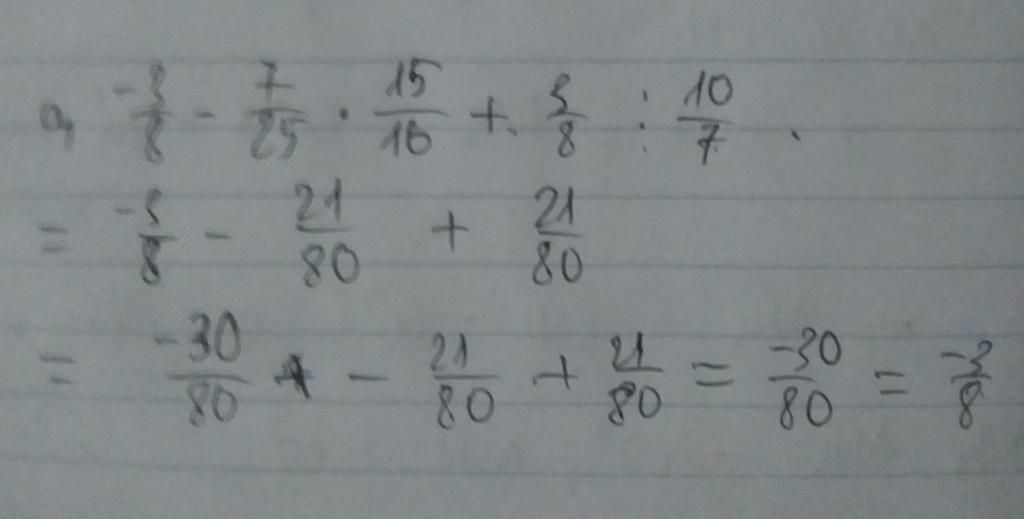 a, -3/8 - 7/25 · 15/16 + 3/8 : 10/7 .
= -3/8 - 21/80 + 21/80
= -30/80 - 21/80 + 21/80 = -30/80 = -3/8